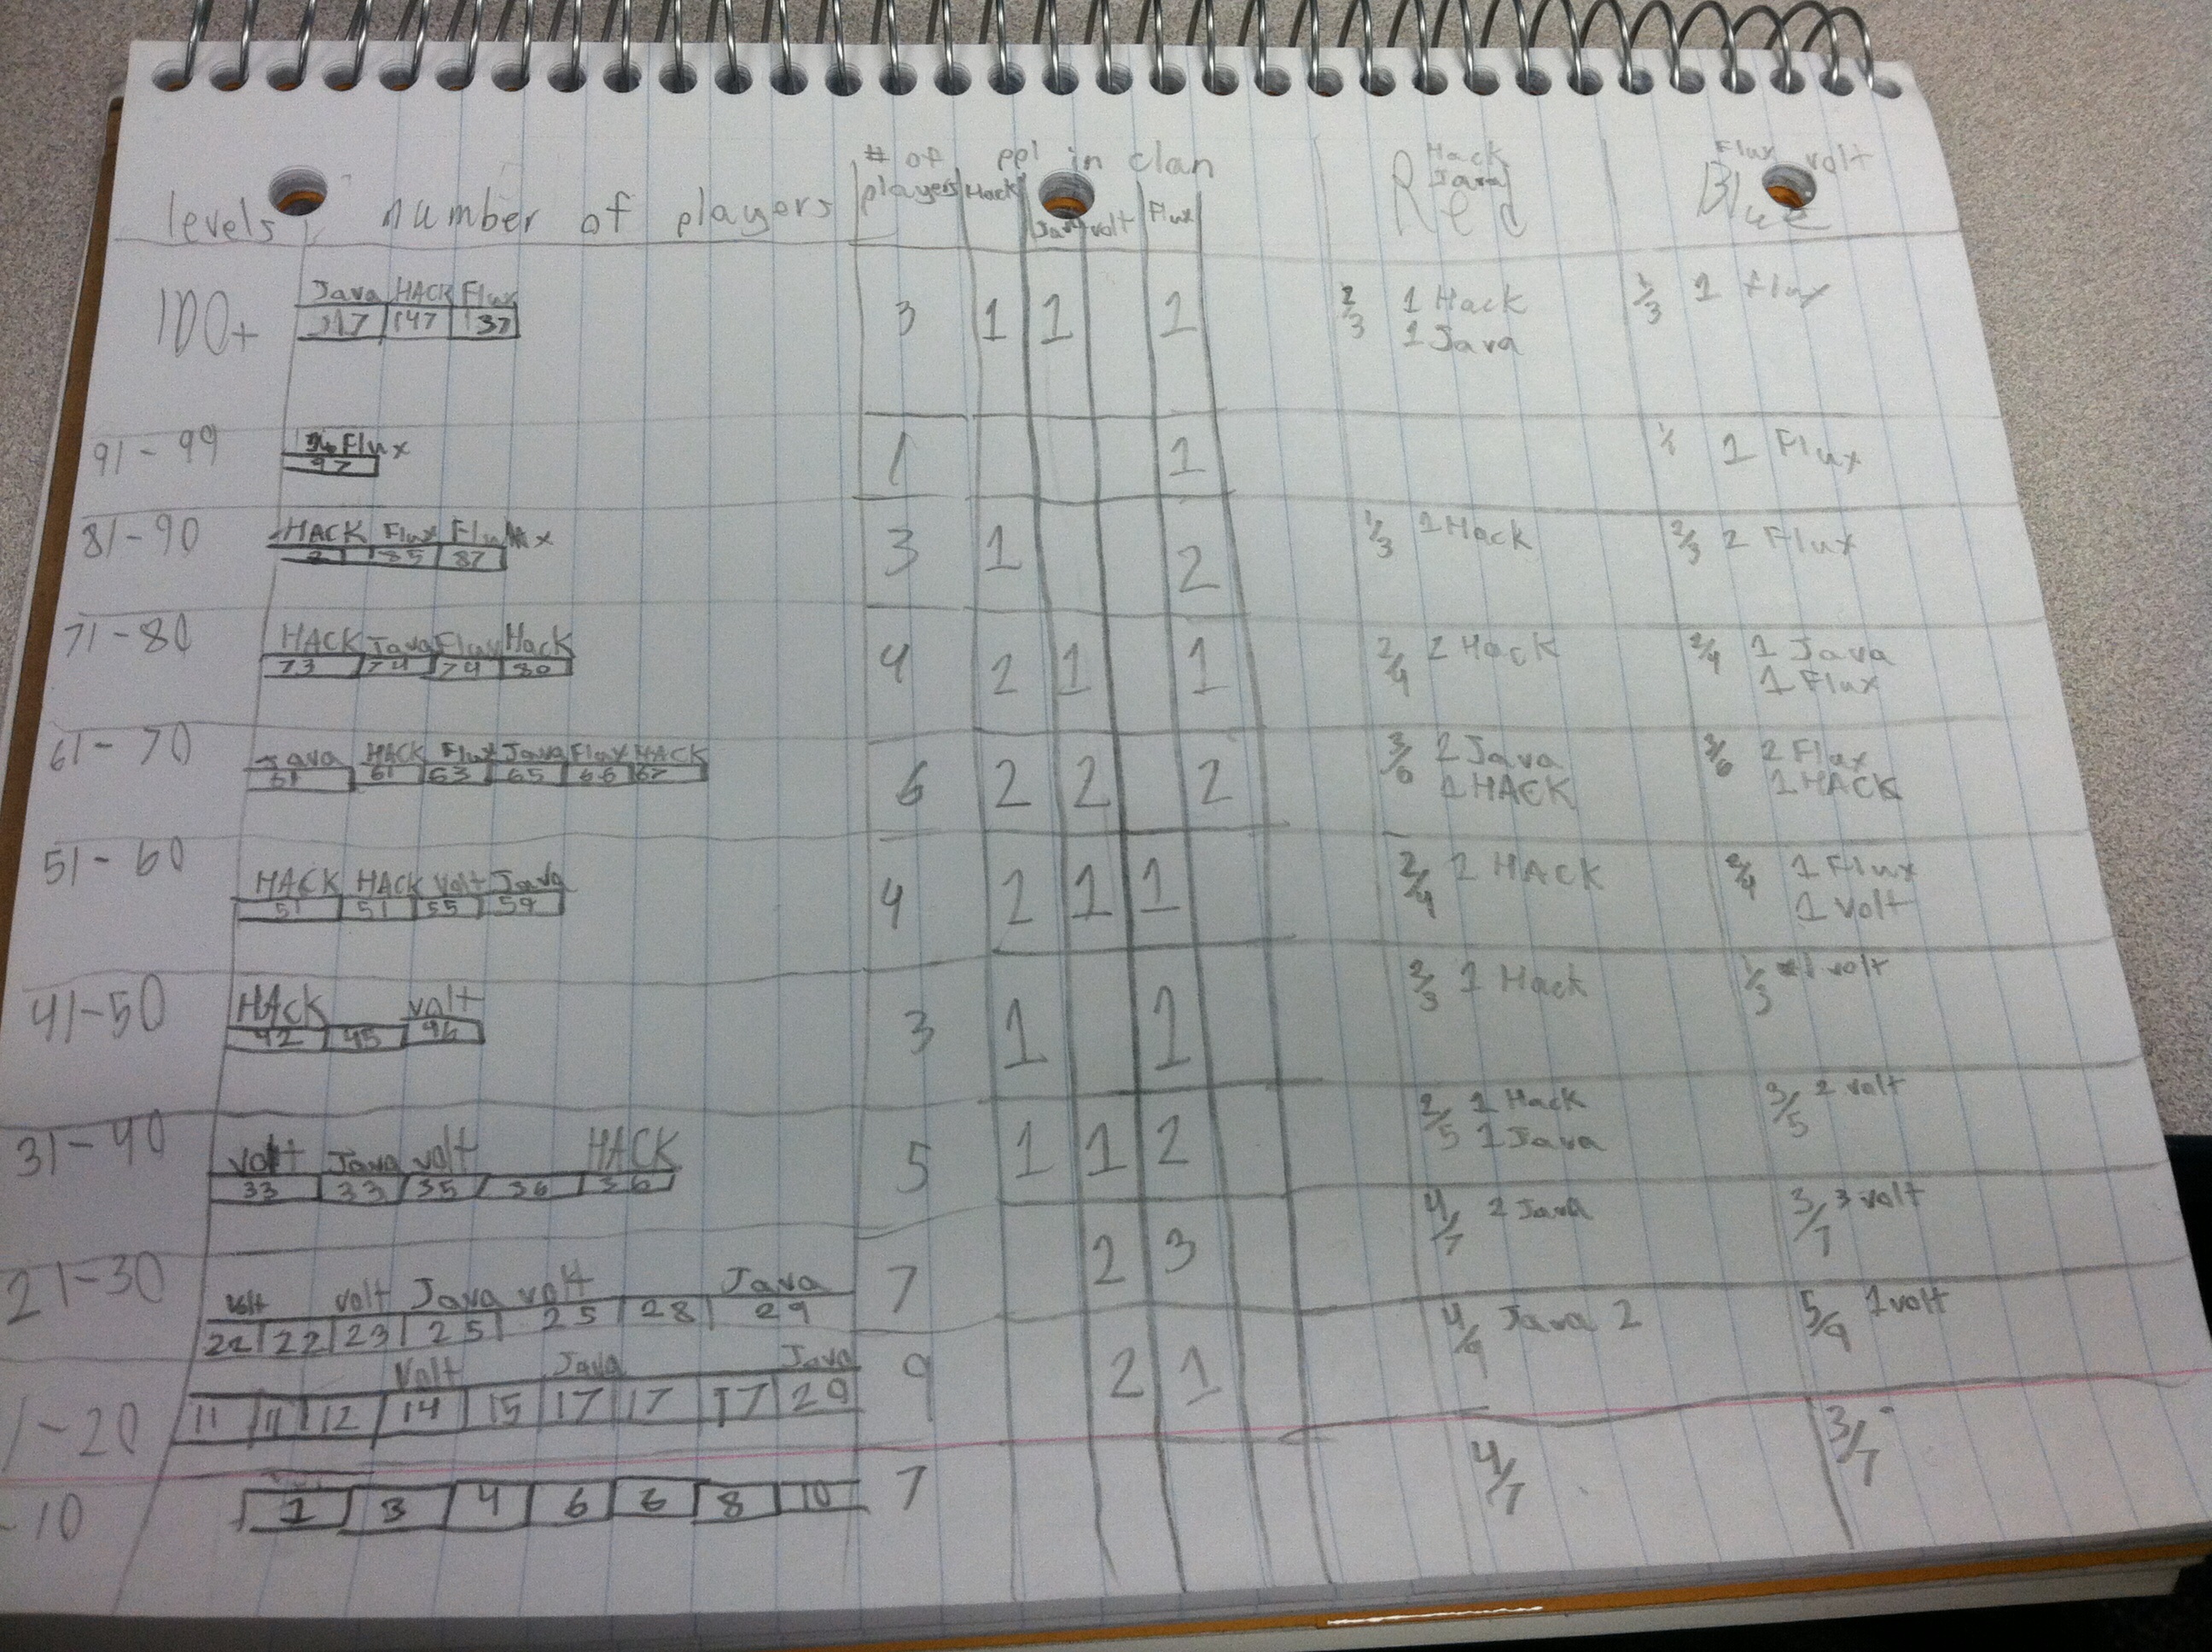 # of ppl in clan Hack Flux volt
levels number of players players Hack Java volt Flux Java Red Blue
Java HACK Flux
100+ 317 147 137 3 1 1 1 2/3 1 Hack 1/3 1 Flux
1 Java
Flux
91-99 97 1 1 1 Flux
HACK Flux Flux
81-90 85 87 3 1 2 1/3 1 Hack 2/3 2 Flux
HACK Java Flux Hack
71-80 73 74 74 80 4 2 1 1 2/4 2 Hack 2/4 1 Java
1 Flux
Java HACK Flux Java Flux HACK
61-70 61 61 63 65 66 67 6 2 2 2 3/6 2 Java 3/6 2 Flux
1 HACK 1 HACK
HACK HACK Volt Java
51-60 51 51 55 59 4 2 1 1 2/4 2 HACK 2/4 1 Flux
1 Volt
HACK volt
41-50 42 45 46 3 1 1 2/3 1 Hack 1/3 1 volt
volt Java volt HACK
31-40 33 33 35 36 36 5 1 1 2 2/5 1 Hack 3/5 2 volt
1 Java
volt volt Java volt Java
21-30 22 22 23 25 25 28 29 7 2 3 4/7 2 Java 3/7 3 volt
Volt Java Java
1-20 11 11 12 14 15 17 17 17 20 9 2 1 4/9 Java 2 5/9 1 volt
-10 1 3 4 6 6 8 10 7 4/7 3/7